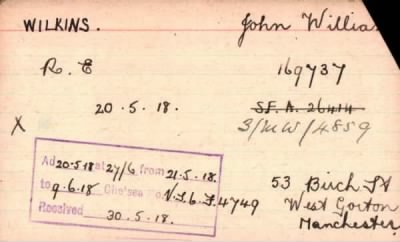 WILKINS. John Willia
R. E 169737
20.5.18. S.F.A. 26414
X 3/MW/4859
Ad 20.5.18 at 27/6 from 21.5.18.
to 9.6.18 Chelsea
4749
Received 30.5.18.
53 Birch St
West Gorton
Manchester.